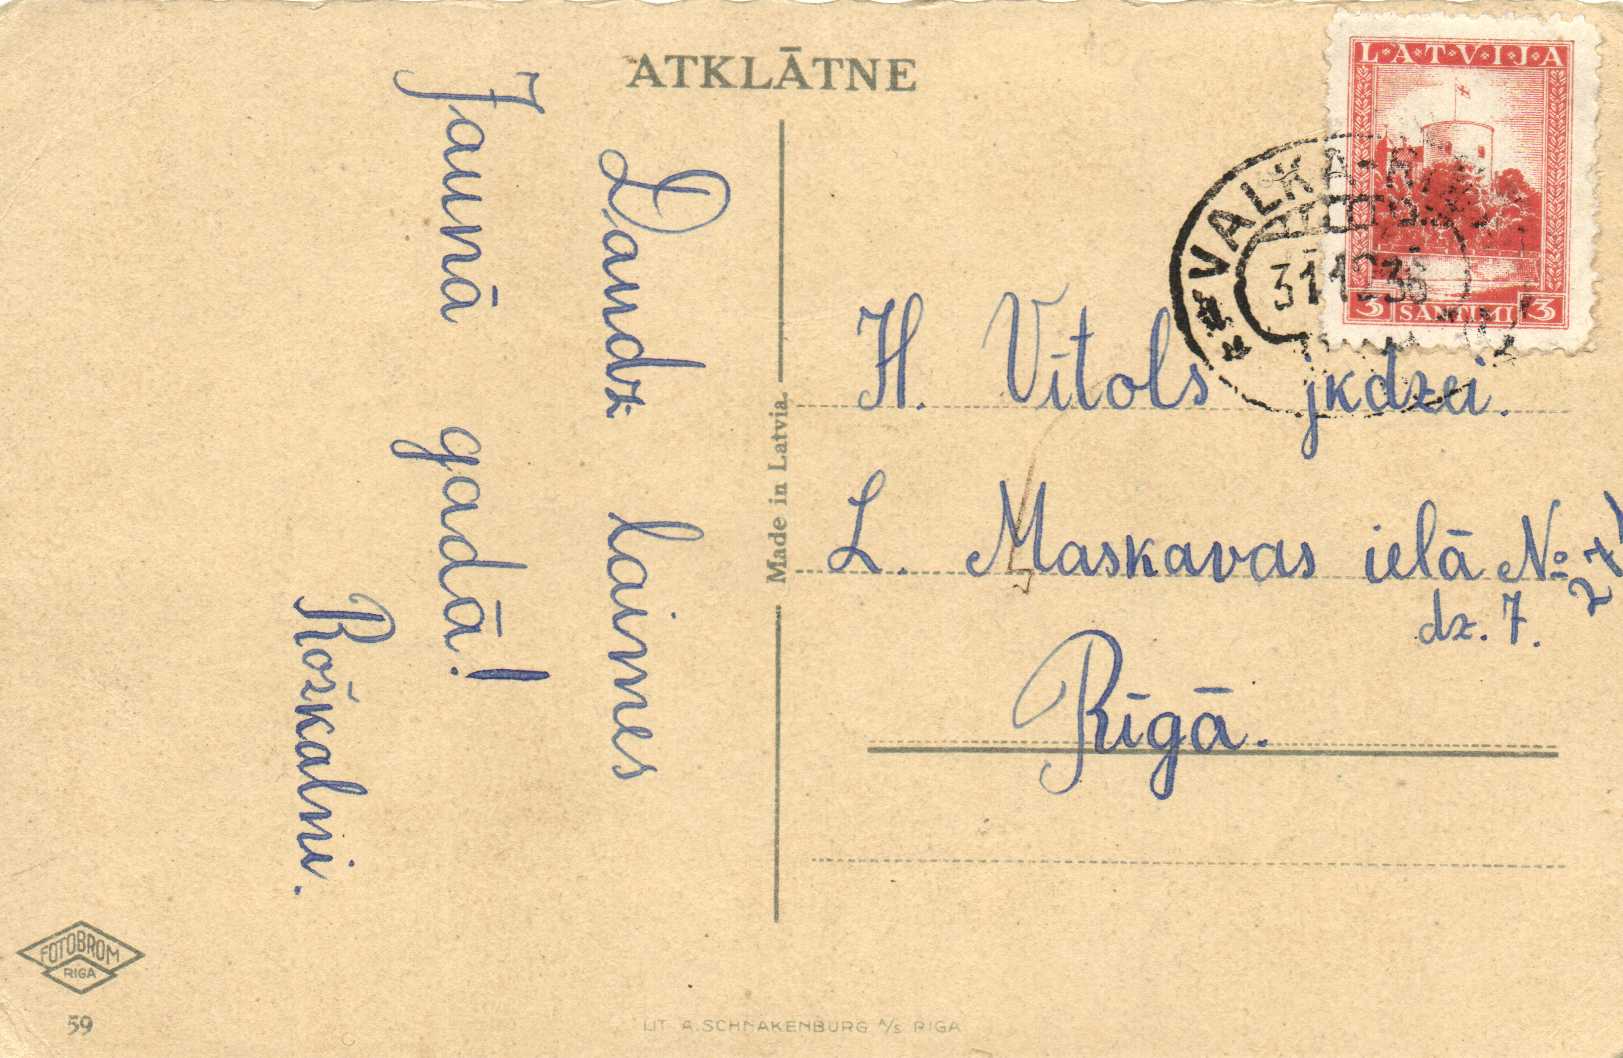 ATKLĀTNE
Daudz laimes
Jaunā gadā!
Rožkalni.
Made in Latvia.
LATVIJA
3 SANTIMI 3
VALKA-RĪGA
H. Vītols jkdzei.
L. Maskavas ielā No
dz. 7.
Rīgā.
FOTOBROM
RIGA
59
LIT. A. SCHNAKENBURG A/S RIGA